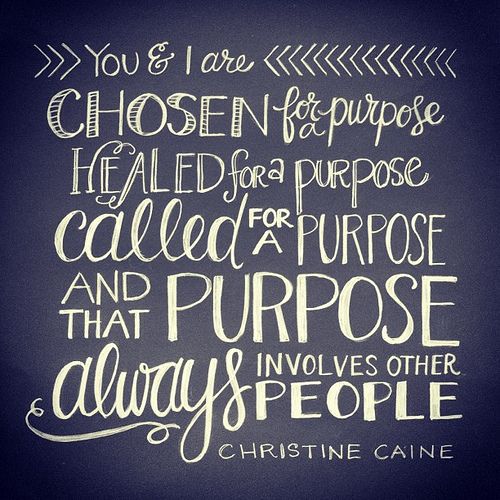 >>> You & I are <<<<<<<<<<<
CHOSEN for a purpose
HEALED for a purpose
called FOR A PURPOSE
AND THAT PURPOSE
always INVOLVES OTHER PEOPLE
CHRISTINE CAINE